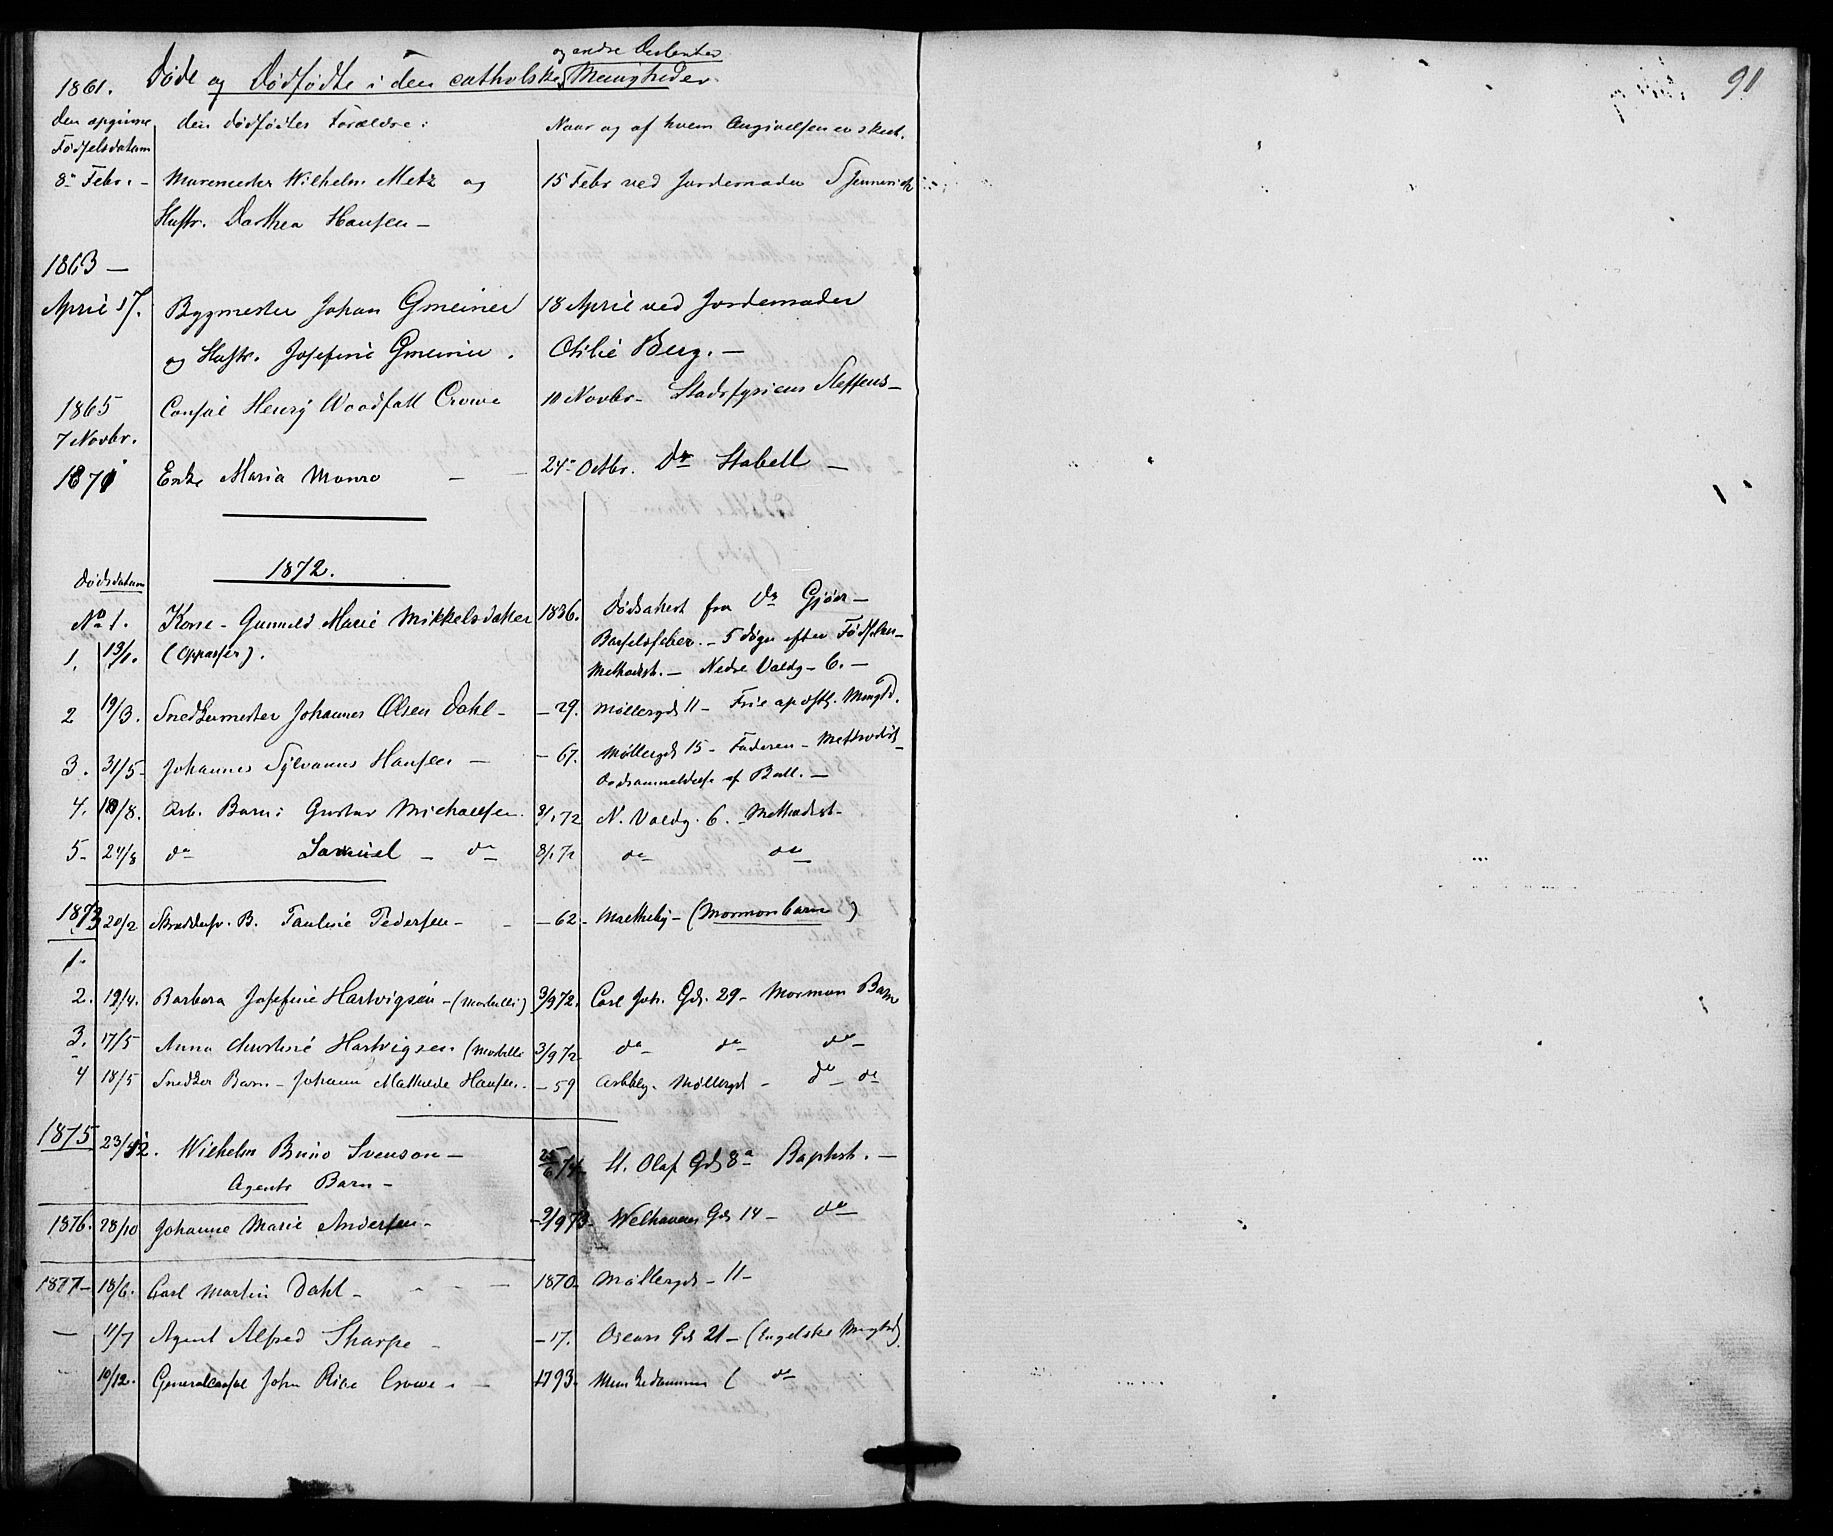 91
og andre Decenter
1861. Døde og Dødfødte i den catholske Menigheder
den opgivne den dødfødtes Forældre: Naar og af hvem Angivelsen er skeet.
Fødselsdatum
8 Febr. - Murmester Wilhelm Metz og 15 Febr ved Jordemoder
Hustr. Dorthea Hansen -
1863 -
April 17. Bygmester Johan Gmeiner 18 April ved Jordemoder
og Hustr. Josefine Gmeiner. Otilie Berg. -
1865 Consul Henry Woodfall Crowe 10 Novbr - Stadsfysicus Steffens -
7 Novbr.
1871 Enke Maria Monro - 24 Octbr. Dr Stabell -
1872.
Dødsdatum
No 1. Kone - Gunnild Marie Mikkelsdatter 1836. Dødsattest fra Dr Gjør -
1. 19/1. (Oppasser). Barselsfeber. - 5 døgn efter Fødselen -
Methodist. - Nedre Voldg - 6. -
2 19/3. Snedkermester Johannes Olsen Dahl - - 29. Møllergd 11 - Frie apostl. Mengd.
3. 31/5 - Johannes Sylvanus Hansen - - 67. Møllergd 15 - Faderen - Methodist -
Dødsanmeldelse af Ball. -
4. 18/8. Arb. Barn: Gustav Michaelsen. 3/1 72 N. Voldg. 6. Methodist -
5 - 24/8 do Samuel - do 8/1 72 do do
1873 20/2 B. Pauline Pedersen - - 62 - - (Mormonbarn)
1.
2. 19/4. Barbara Josefine Hartvigsen - (Morbilli) 3/9 72. Carl Joh. Gd. 29 - Mormon Barn
3. 17/5 Anna Christine Hartvigsen (Morbilli 3/9 72 do do do
4 18/5 Snedker Barn - Johann Mathilde Hansen. - 59 Møllergd - do do
1875 23/12. Wilhelm Bruno Svenson - 25/6 74 St. Olaf Gd 8a Baptist. -
Agents Barn -
1876. 28/10 Johanne Marie Andersen - 2/9 73 - Welhavens Gd 14 - do
1877 - 18/6. Carl Martin Dahl - 1870 - Møllergd - 11 -
- 11/7 Agent Alfred Sharpe - - 17. Oscars Gd 21 - (Engelske Mengd)
10/12. Generalconsul John Rice Crowe. - 1793. Munkedammen ( do